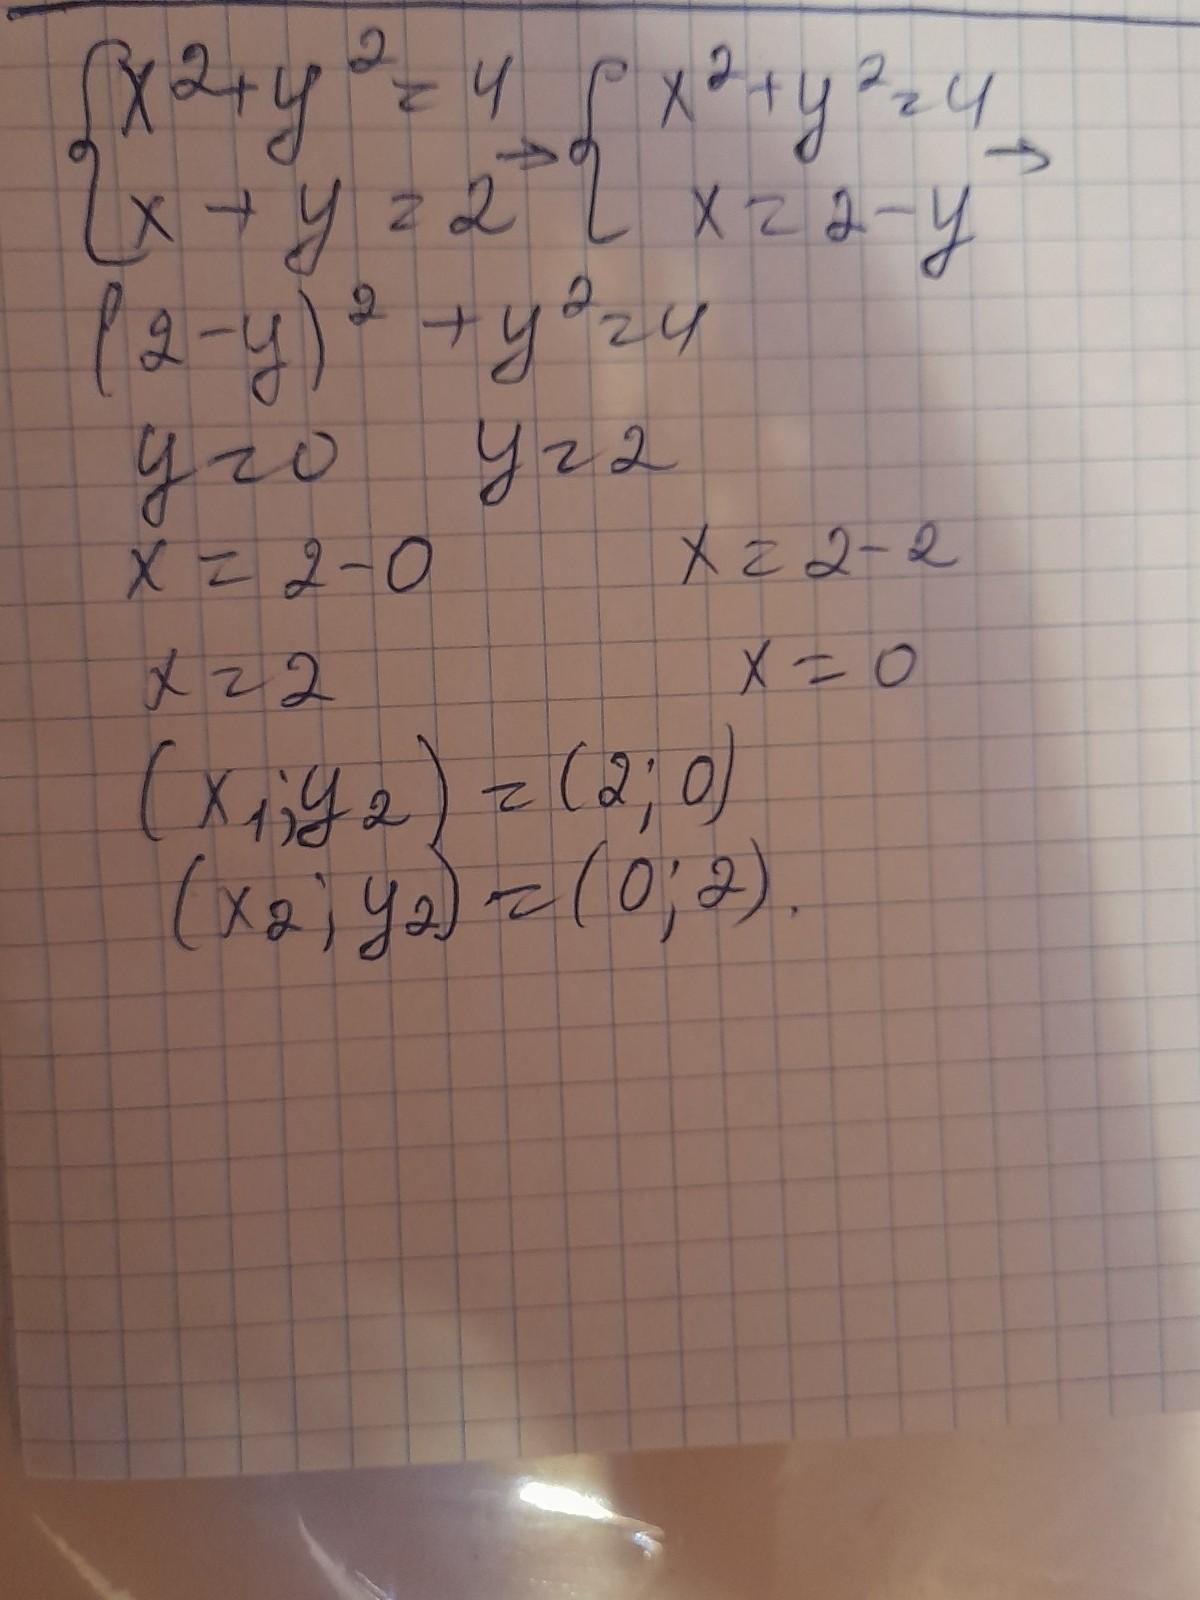 {x²+y²=4 → {x²+y²=4 →
x+y=2 x=2-y
(2-y)²+y²=4
y=0 y=2
x=2-0 x=2-2
x=2 x=0
(x₁;y₂)=(2;0)
(x₂;y₂)=(0;2).